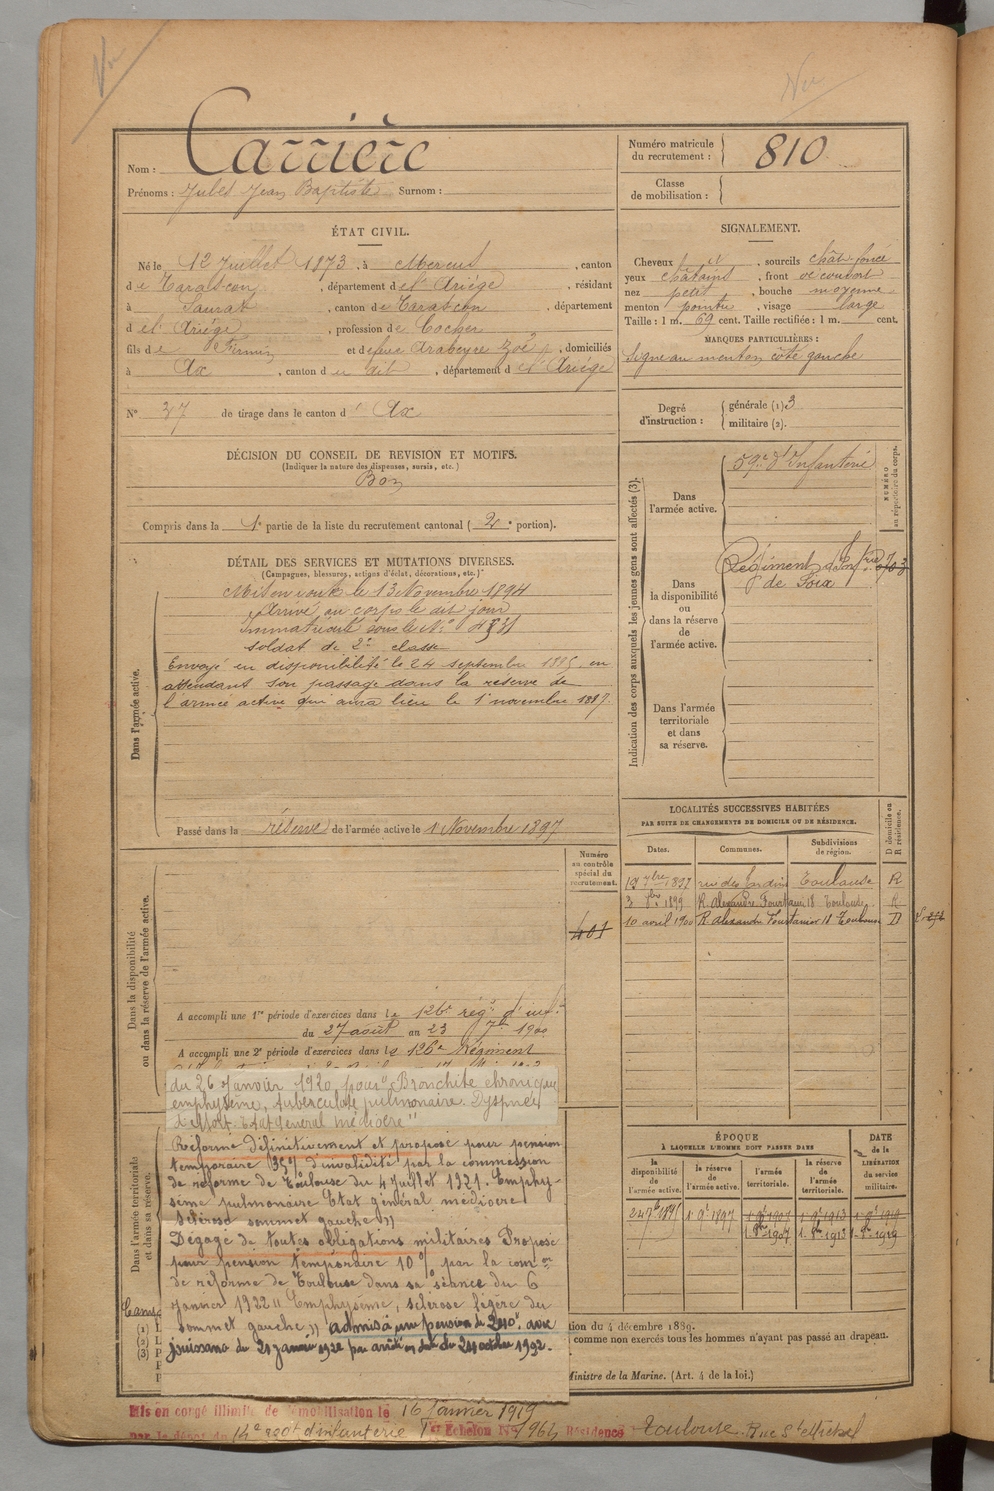 Vu
Vu
Nom : Carrière
Prénoms : Jules Jean Baptiste Surnom :
Numéro matricule du recrutement : 810
Classe de mobilisation :
ÉTAT CIVIL.
Né le 12 Juillet 1873, à Mercus, canton
de Tarascon, département de l'Ariége, résidant
à Saurat, canton de Tarascon, département
d el' Ariége, profession de Cocher
fils de Firmin et de feue Arabeyre Zoé, domiciliés
à Ax, canton d u dit, département d e l'Ariége
N° 37 de tirage dans le canton d' Ax
SIGNALEMENT.
Cheveux et, sourcils chât foncé
yeux châtains, front découvert
nez petit, bouche moyenne
menton pointu, visage large
Taille : 1 m. 69 cent. Taille rectifiée : 1 m. cent.
MARQUES PARTICULIÈRES :
Signe au menton côté gauche
Degré d'instruction : générale (1) 3
militaire (2).
DÉCISION DU CONSEIL DE REVISION ET MOTIFS.
(Indiquer la nature des dispenses, sursis, etc.)
Bon
Compris dans la 1e partie de la liste du recrutement cantonal (2e portion).
DÉTAIL DES SERVICES ET MUTATIONS DIVERSES.
(Campagnes, blessures, actions d'éclat, décorations, etc.)
Dans l'armée active.
Mis en route le 13 Novembre 1894
Arrivé au corps le dit jour
Immatriculé sous le N°
soldat de 2e classe
Envoyé en disponibilité le 24 septembre 1895 en
attendant son passage dans la réserve de
l'armée active qui aura lieu le 1 novembre 1897.
Passé dans la réserve de l'armée active le 1 Novembre 1897
Indication des corps auxquels les jeunes gens sont affectés (3).
NUMÉRO au répertoire du corps.
Dans l'armée active.
59e d'Infanterie
Dans la disponibilité ou dans la réserve de l'armée active.
Régiment d'Infrie
de Foix
Dans l'armée territoriale et dans sa réserve.
LOCALITÉS SUCCESSIVES HABITÉES
PAR SUITE DE CHANGEMENTS DE DOMICILE OU DE RÉSIDENCE.
Dates. Communes. Subdivisions de région. D domicile ou R résidence.
19 7bre 1897 rue des Jardins Toulouse R
3 1899 R. Alexandre Fourtanier 18 Toulouse R
10 avril 1900 R. Alexandre Fourtanier 18 Toulouse D
Numéro au contrôle spécial du recrutement.
401
Dans la disponibilité ou dans la réserve de l'armée active.
A accompli une 1re période d'exercices dans le 126e régt d'inf.
du 27 août au 23 7bre 1900
A accompli une 2e période d'exercices dans le 126e Régiment
du 26 Janvier 1920 pour "Bronchite chronique
emphysème, tuberculose pulmonaire. Dyspnée
d'effort. Etat général médiocre"
Dans l'armée territoriale et dans sa réserve.
Réformé définitivement et proposé pour pension
temporaire 35% d'invalidité par la commission
de réforme de Toulouse du 4 juillet 1921. Emphy-
sème pulmonaire Etat général médiocre
sclérose sommet gauche"
Dégagé de toutes obligations militaires Proposé
pour pension temporaire 10% par la comon
de réforme de Toulouse dans sa séance du 6
janvier 1922 "Emphysème, sclérose légère du
sommet gauche" admis à une pension de 240f. avec
jouissance du 21 janvier 1922 par arrêté en date du 24 octobre 1922.
ÉPOQUE
À LAQUELLE L'HOMME DOIT PASSER DANS
DATE de la LIBÉRATION du service militaire.
la disponibilité de l'armée active. la réserve de l'armée active. l'armée territoriale. la réserve de l'armée territoriale.
24 7bre 1895 1 9bre 1897 1 9bre 1907 1 9bre 1913 1 9bre 1919
1 8bre 1907 1. 8bre 1913 1. 8bre 1919
(1)
(2)
(3)
tion du 4 décembre 1889.
comme non exercés tous les hommes n'ayant pas passé au drapeau.
Ministre de la Marine. (Art. 4 de la loi.)
Mis en congé illimité de démobilisation le 16 Janvier 1919
par le dépôt du 14e regt d'infanterie 1er Echelon N° 1964 Résidence Toulouse Rue St Michel